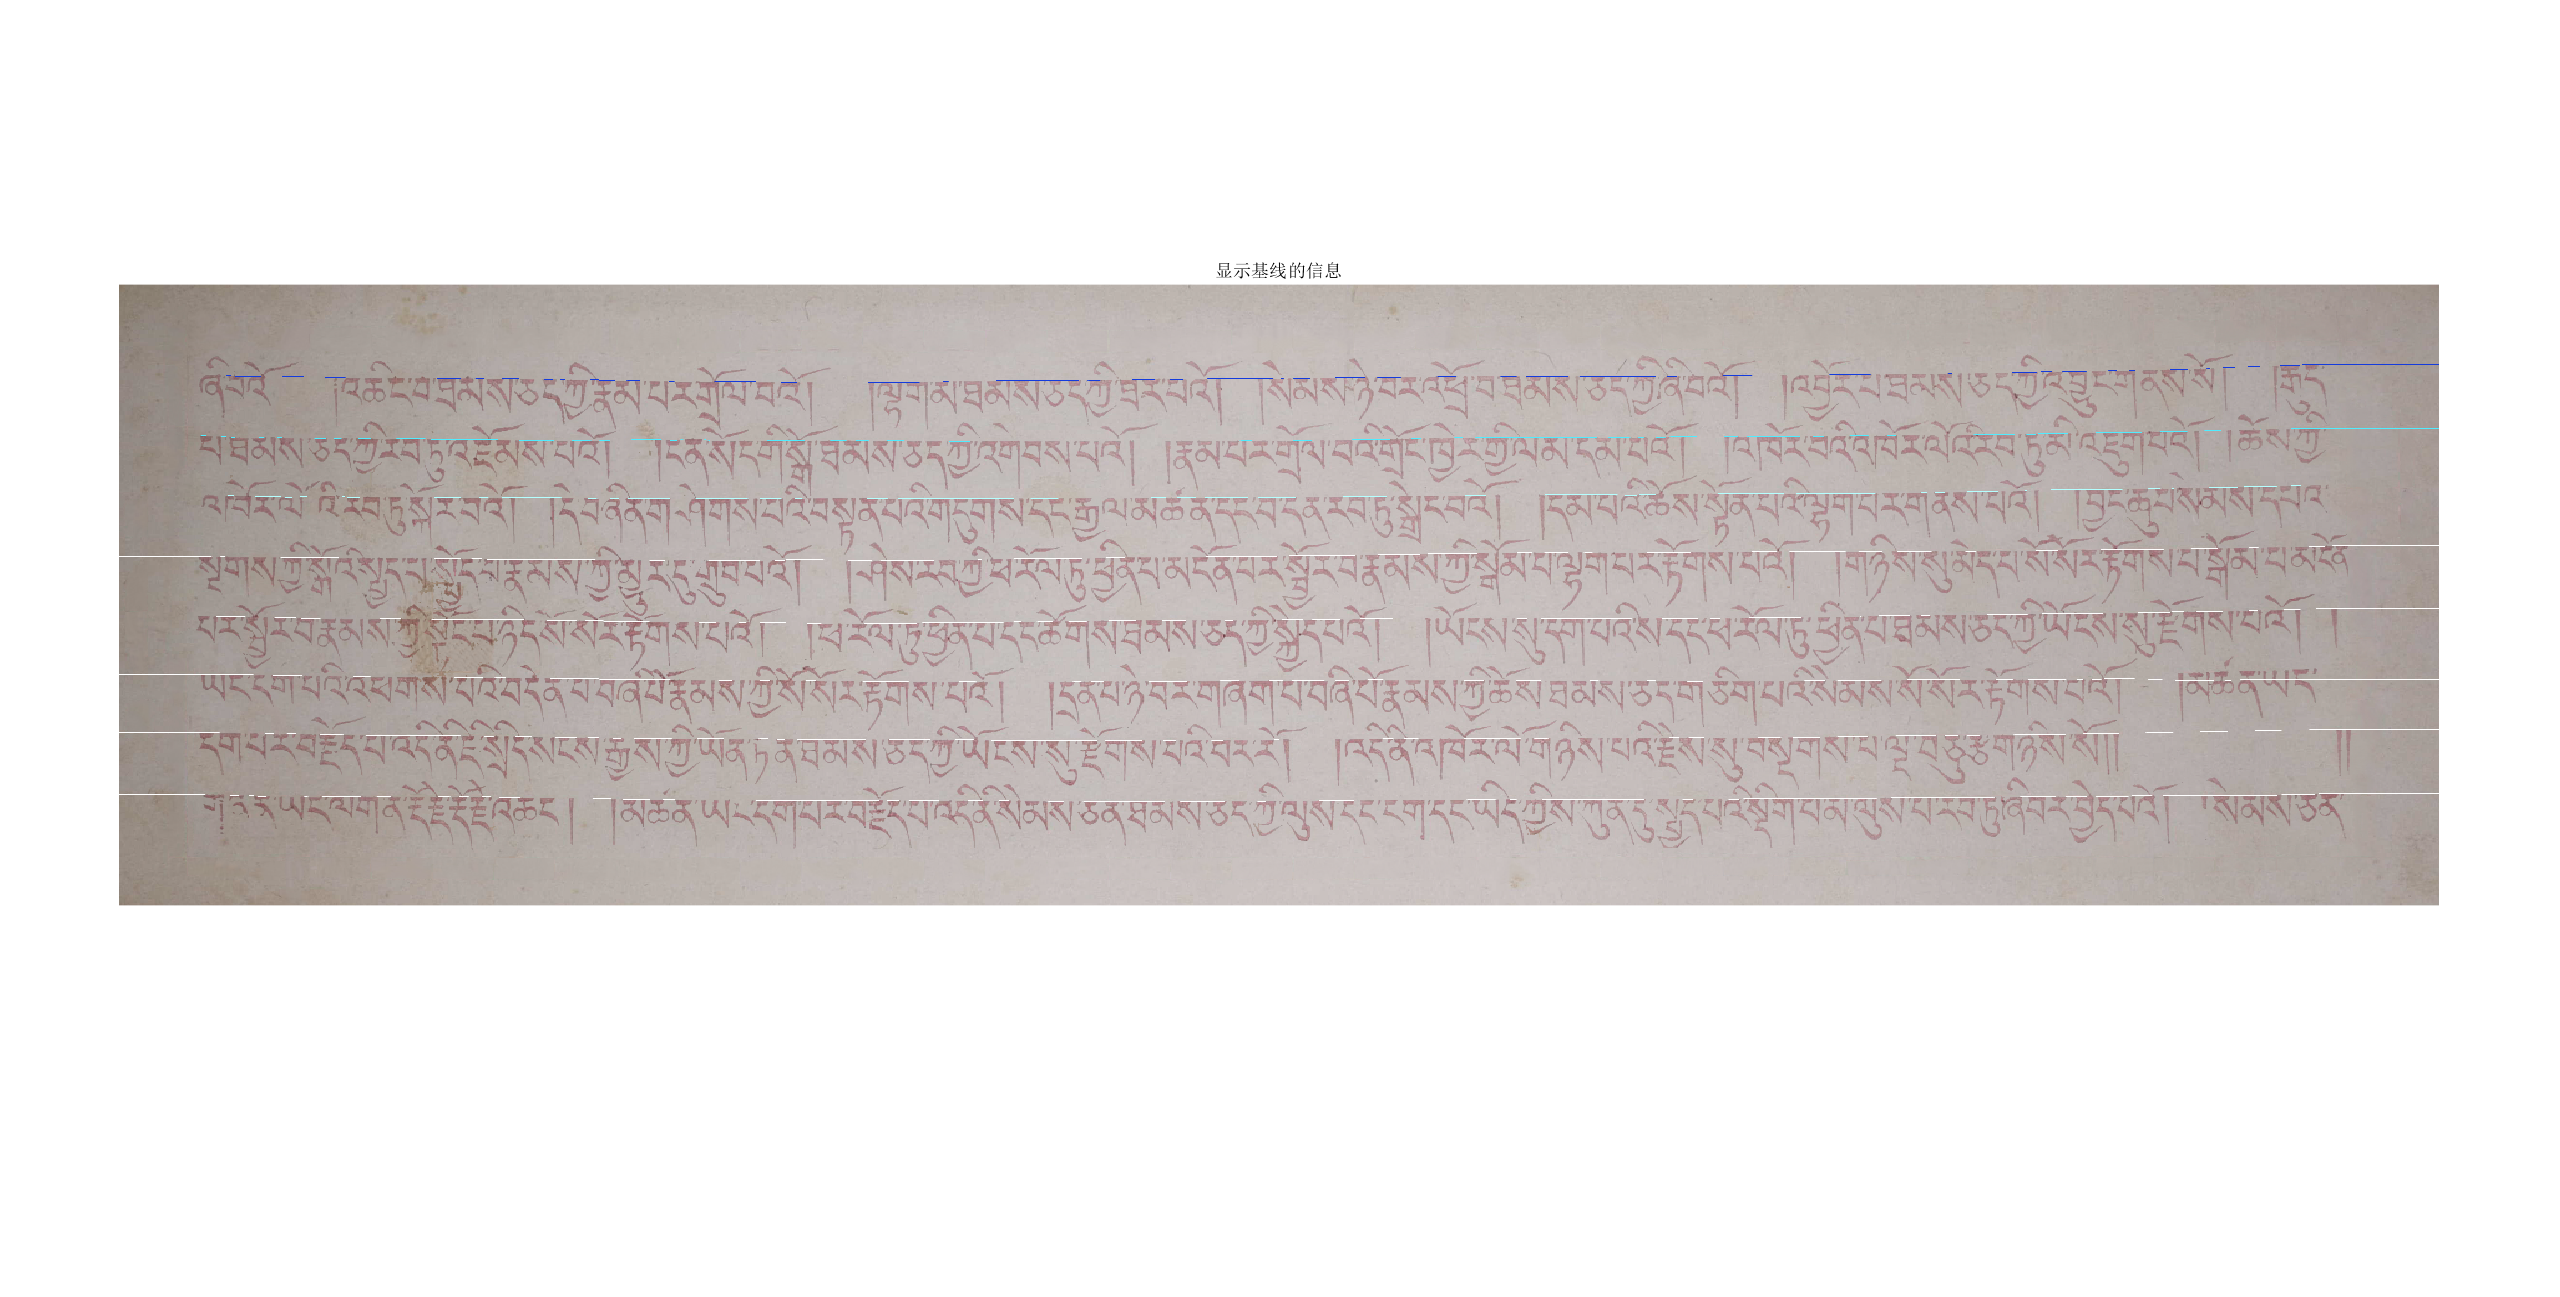 显示基线的信息
ཞི་བའོ། །འཆིང་བ་ཐམས་ཅད་ཀྱི་རྣམ་པར་གྲོལ་བའོ། །ལྷག་མ་ཐམས་ཅད་ཀྱི་ཐར་པའོ། །སེམས་ཉེ་བར་འཕྲོ་བ་ཐམས་ཅད་ཀྱི་ཞི་བའོ། །འབྱོར་པ་ཐམས་ཅད་ཀྱི་འབྱུང་གནས་སོ། །རྒུད་
པ་ཐམས་ཅད་ཀྱི་རབ་ཏུ་འཇོམས་པའོ། །ངན་སོང་གི་སྒོ་ཐམས་ཅད་ཀྱི་འགེབས་པའོ། །རྣམ་པར་གྲོལ་བའི་གྲོང་ཁྱེར་གྱི་ལམ་དམ་པའོ། །འཁོར་བའི་འཁོར་ལོ་འི་རབ་ཏུ་མི་འཇུག་པའོ། །ཆོས་ཀྱི་
འཁོར་ལོ་འི་རབ་ཏུ་སྐོར་བའོ། །དེ་བཞིན་གཤེགས་པའི་བསྟན་པའི་གདུགས་དང་རྒྱལ་མཚན་དང་བ་དན་རབ་ཏུ་སྒྲེང་བའོ། །དམ་པའི་ཆོས་སྟོན་པའི་ལྷག་པར་གནས་པའོ། །བྱང་ཆུབ་སེམས་དཔའ་
སྔགས་ཀྱི་སྒོའི་སྤྱད་པ་སྤྱོད་པ་རྣམས་ཀྱི་མྱུར་དུ་གྲུབ་པའོ། །ཤེས་རབ་ཀྱི་ཕ་རོལ་ཏུ་ཕྱིན་པ་མངོན་པར་སྦྱོར་བ་རྣམས་ཀྱི་སྒོམ་པ་ལྷག་པར་རྟོགས་པའོ། །གཉིས་སུ་མེད་པ་སོ་སོར་རྟོགས་པ་སྒོམ་པ་མངོན་
པར་སྦྱོར་བ་རྣམས་ཀྱི་སྟོང་པ་ཉིད་སོ་སོར་རྟོགས་པའོ། །ཕ་རོལ་ཏུ་ཕྱིན་པ་དང་ཚོགས་ཐམས་ཅད་ཀྱི་སྐྱེད་པའོ། །ཡོངས་སུ་དག་པའི་ས་དང་ཕ་རོལ་ཏུ་ཕྱིན་པ་ཐམས་ཅད་ཀྱི་ཡོངས་སུ་རྫོགས་པའོ། །
ཡང་དག་པའི་འཕགས་པའི་བདེན་པ་བཞི་པོ་རྣམས་ཀྱི་སོ་སོར་རྟོགས་པའོ། །དྲན་པ་ཉེ་བར་གཞག་པ་བཞི་པོ་རྣམས་ཀྱི་ཆོས་ཐམས་ཅད་གཅིག་པའི་སེམས་སོ་སོར་རྟོགས་པའོ། །མཚན་ཡང་
དག་པར་བརྗོད་པ་འདི་ནི་ཇི་སྲིད་སངས་རྒྱས་ཀྱི་ཡོན་ཏན་ཐམས་ཅད་ཀྱི་ཡོངས་སུ་རྫོགས་པའི་བར་རོ། །འདི་ནི་འཁོར་ལོ་གཉིས་པའི་རྗེས་སུ་བསྔགས་པ་ལྔ་བཅུ་རྩ་གཉིས་སོ།། །།
ཡང་ལག་ན་རྡོ་རྗེ་རྡོ་རྗེ་འཆང་། །མཚན་ཡང་དག་པར་བརྗོད་པ་འདི་ནི་སེམས་ཅན་ཐམས་ཅད་ཀྱི་ལུས་དང་ངག་དང་ཡིད་ཀྱིས་ཀུན་དུ་སྤྱད་པའི་སྡིག་པ་མ་ལུས་པ་རབ་ཏུ་ཞི་བར་བྱེད་པའོ། །སེམས་ཅན་